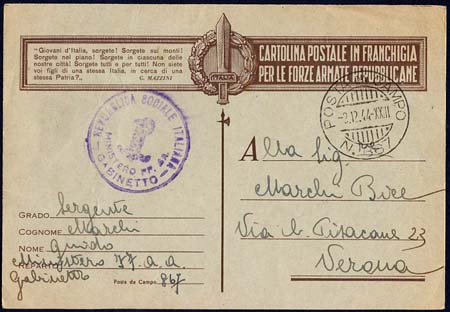 "Giovani d'Italia, sorgete! Sorgete sui monti!
Sorgete nel piano! Sorgete in ciascuna delle
nostre città! Sorgete tutti e per tutti! Non siete
voi figli di una stessa Italia, in cerca di una
stessa Patria?..
G. MAZZINI
ITALIA
CARTOLINA POSTALE IN FRANCHIGIA
PER LE FORZE ARMATE REPUBBLICANE
REPUBBLICA SOCIALE ITALIANA
MINISTERO FF. AA.
GABINETTO
POSTA DA CAMPO
12.44-XXIII
N. 867
GRADO Sergente
COGNOME Marchi
NOME Guido
REPARTO Ministero FF. A. A.
Gabinetto
Posta da Campo 867
Alla Sig
Marchi Bice
Via C. Pisacane 23
Verona